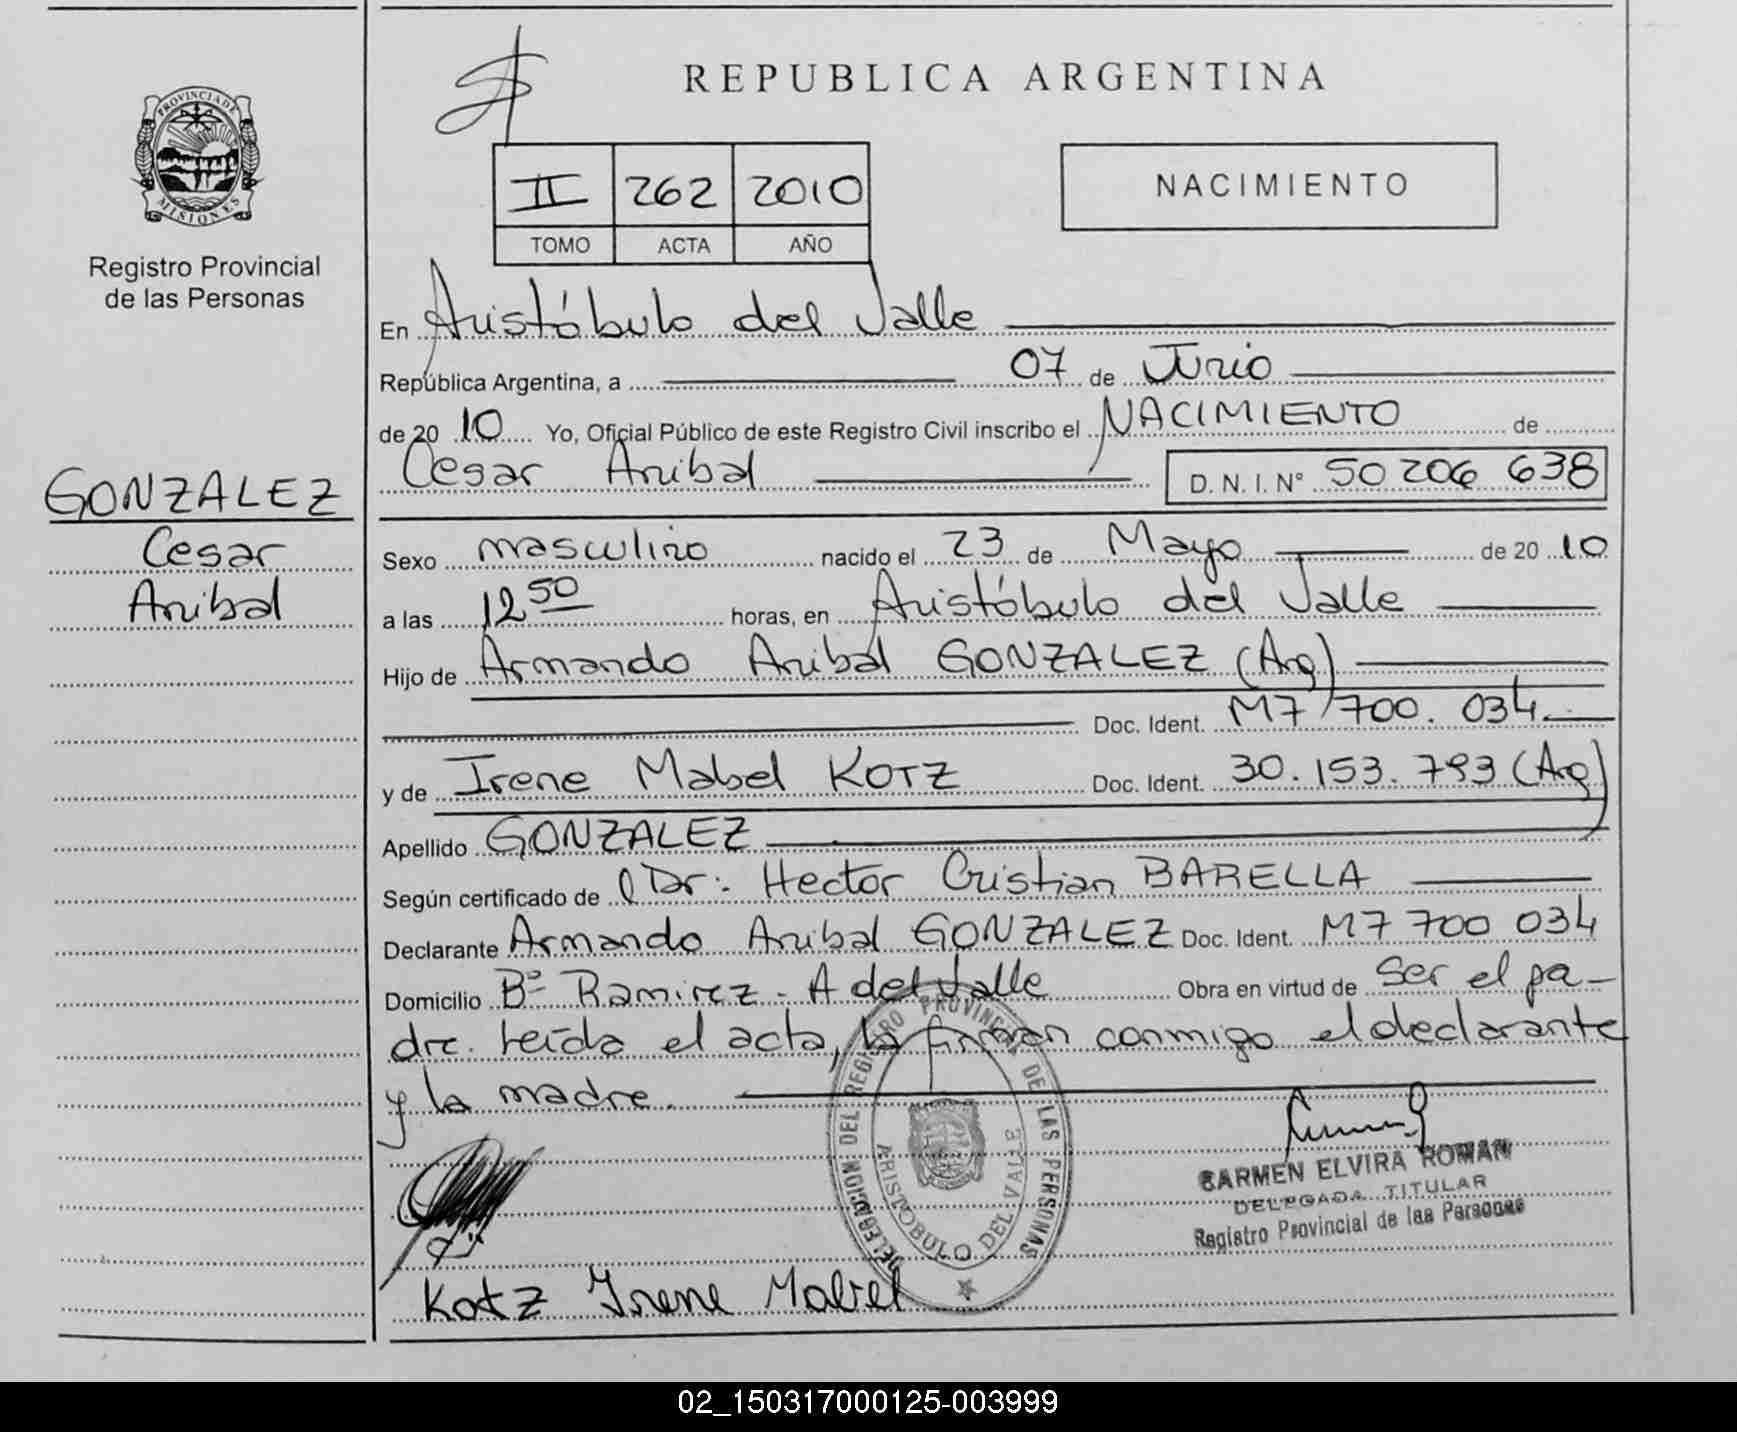 REPUBLICA ARGENTINA
PROVINCIA DE
MISIONES
Registro Provincial
de las Personas
II 262 2010
TOMO ACTA AÑO
NACIMIENTO
En Aristóbulo del Valle
República Argentina, a 07 de Junio
de 20 10 Yo, Oficial Público de este Registro Civil inscribo el NACIMIENTO de
Cesar Anibal D. N. I. N° 50 206 638
GONZALEZ
Cesar
Anibal
Sexo masculino nacido el 23 de Mayo de 20 10
a las 12 50 horas, en Aristóbulo del Valle
Hijo de Armando Anibal GONZALEZ (Arg)
Doc. Ident. M7 700. 034
y de Irene Mabel KOTZ Doc. Ident. 30.153.793 (Arg)
Apellido GONZALEZ
Según certificado de Dr: Hector Cristian BARELLA
Declarante Armando Anibal GONZALEZ Doc. Ident. M7 700 034
Domicilio Bº Ramirez - A del Valle Obra en virtud de ser el pa-
dre. Leída el acta, la firman conmigo el declarante
y la madre.
DELEGACION DEL REGISTRO PROVINCIAL DE LAS PERSONAS
ARISTOBULO DEL VALLE
CARMEN ELVIRA ROMAN
DELEGADA TITULAR
Registro Provincial de las Personas
Kotz Irene Mabel
02_150317000125-003999